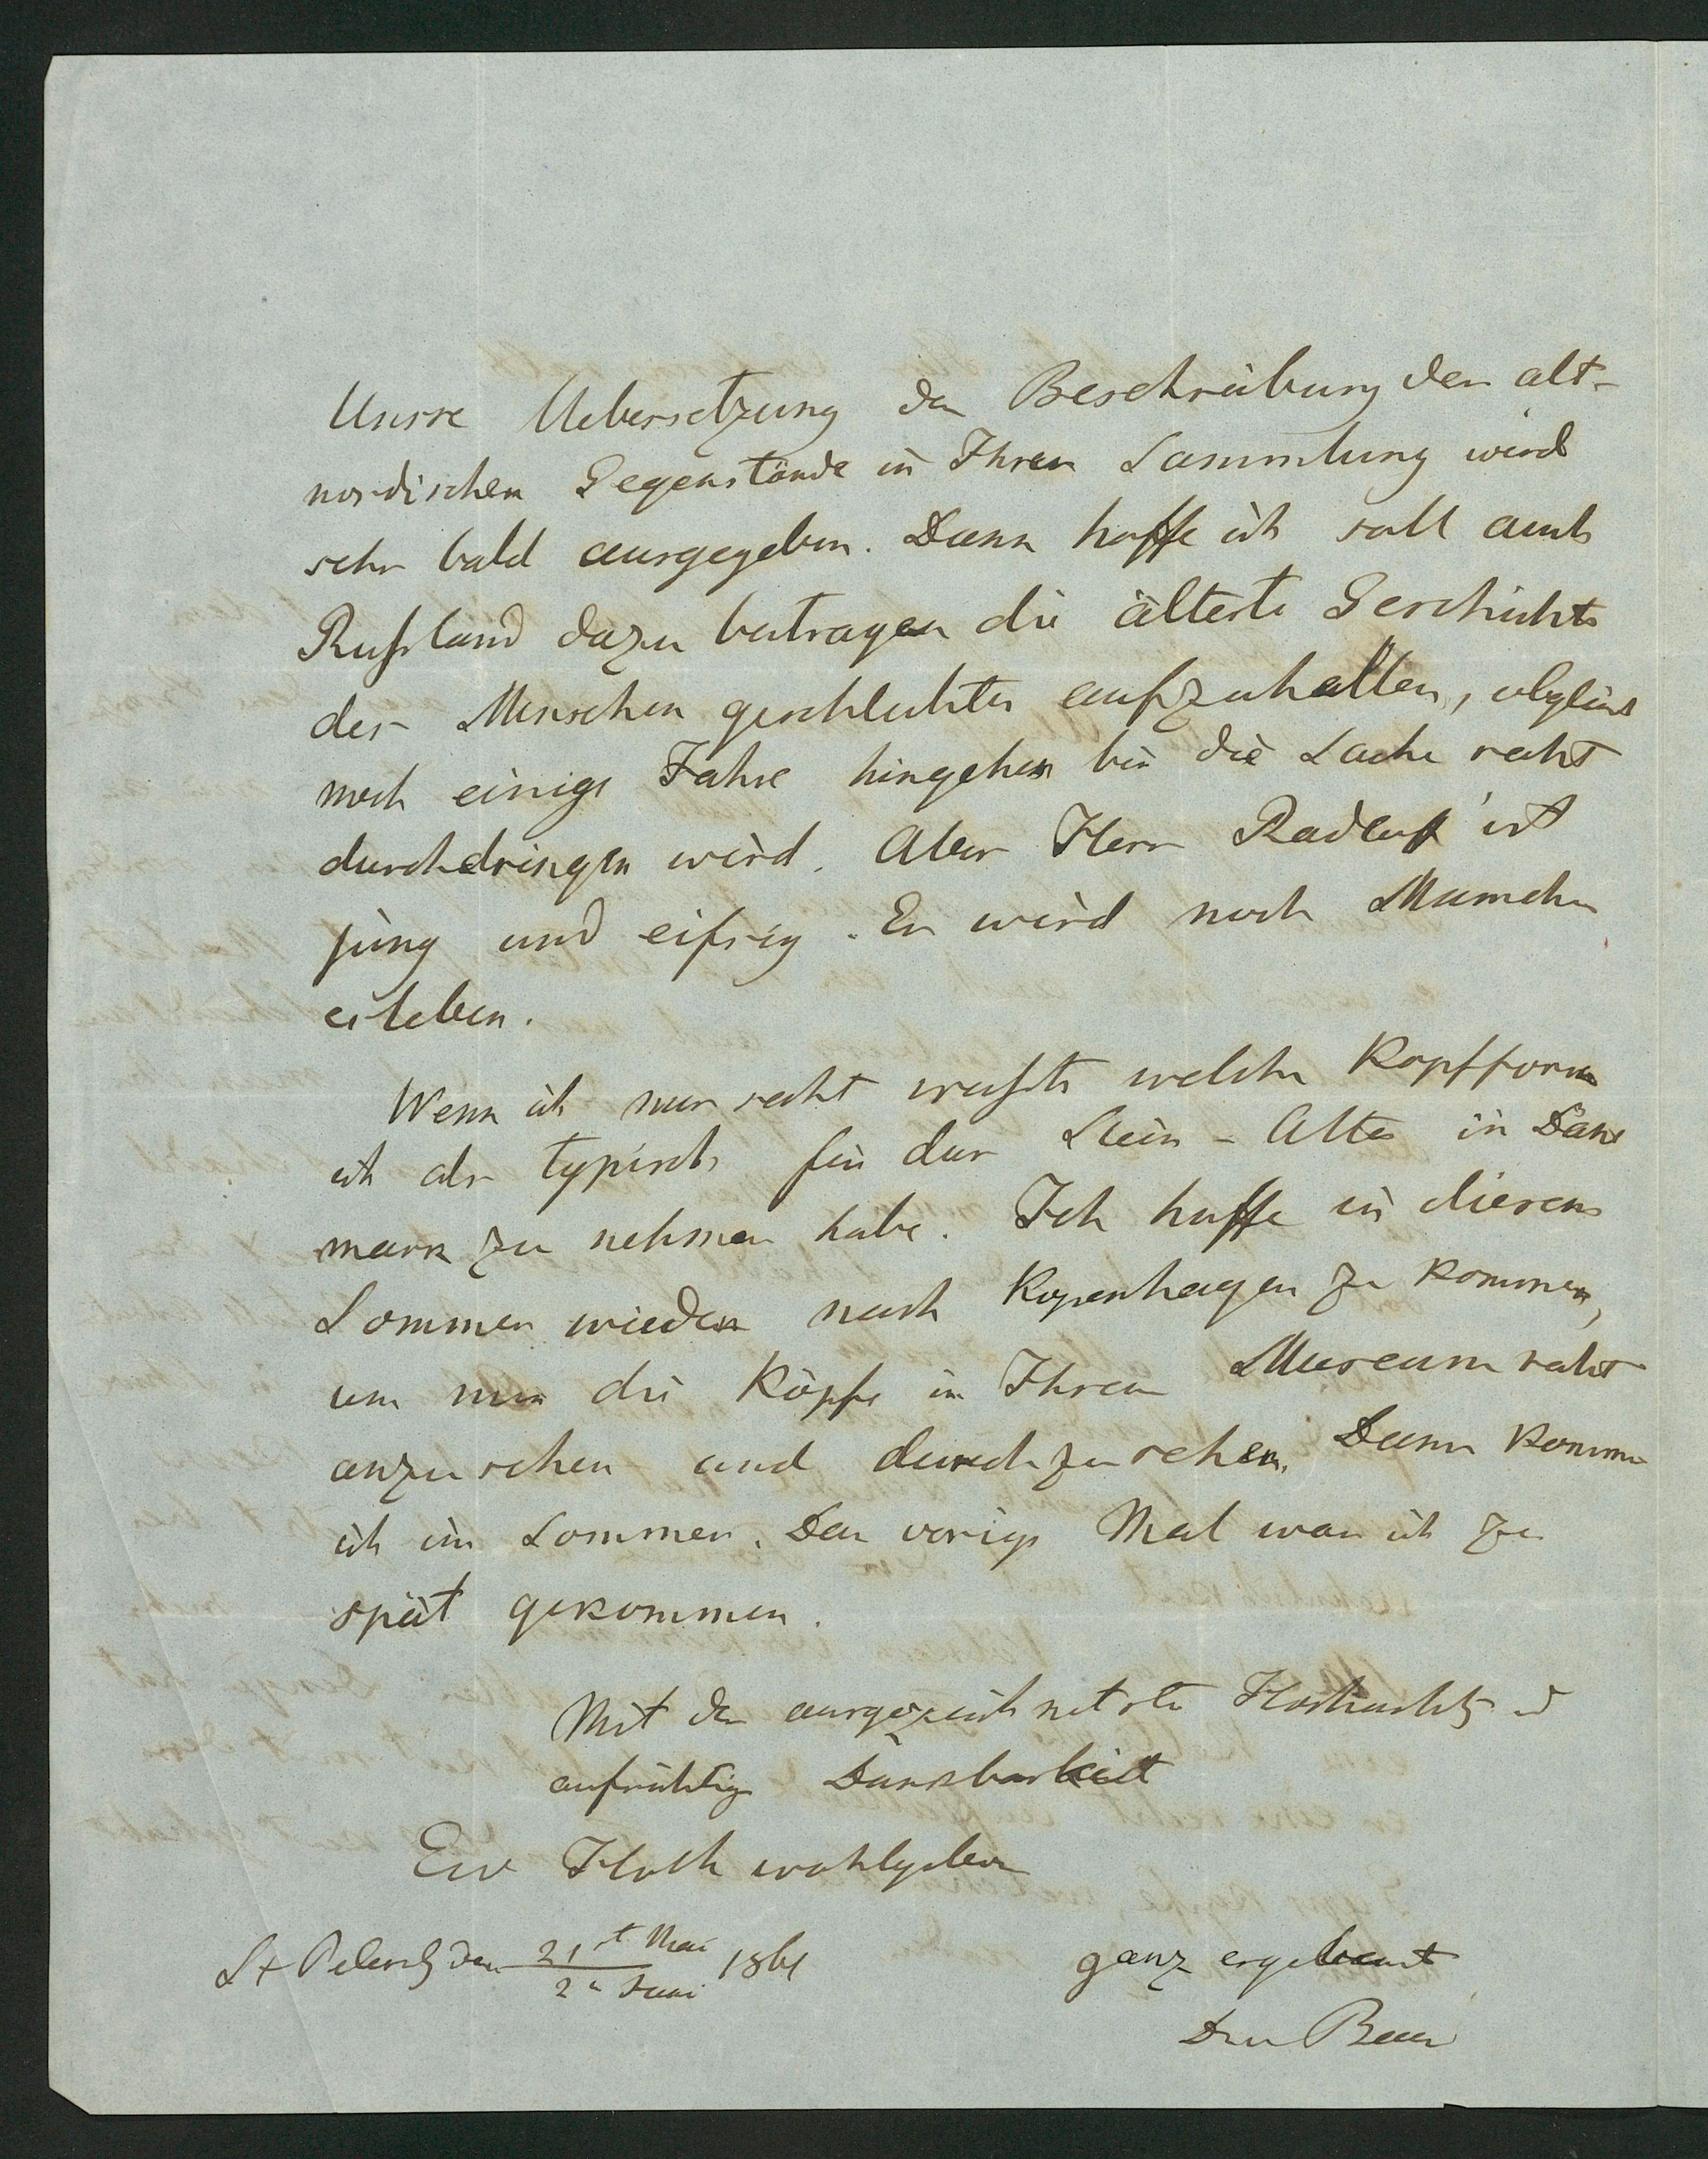 Unsre Uebersetzung der Beschreibung der alt-
nordischen Gegenstände in Ihrer Sammlung wird
sehr bald ausgegeben. Dann hoffe ich soll auch
Rußland dazu beitragen die älteste Geschichte
des Menschen geschlechtes aufzuhellen, obgleich
noch einige Jahre hingehen bis die Sache recht
durchdringen wird. Aber Herr Radloff ist
jung und eifrig. Er wird noch Manches
erleben.
Wenn ich nur recht wußte welche Kopfform
ich als typisch für das Stein-Alter in Däne
mark zu nehmen habe. Ich hoffe in diesem
Sommer wieder nach Kopenhagen zu kommen,
um nun die Köpfe in Ihrem Museum recht
anzusehen und durchzusehen. Dann komme
ich im Sommer. Das vorige Mal war ich zu
spät gekommen.
Mit der ausgezeichnetsten Hochachtg u
aufrichtiger Dankbarkeit
Ew Hoch wohlgeboren
St Petersbg den 21st Mai / 2n Juni 1861
ganz ergebenst
Dr v Baer